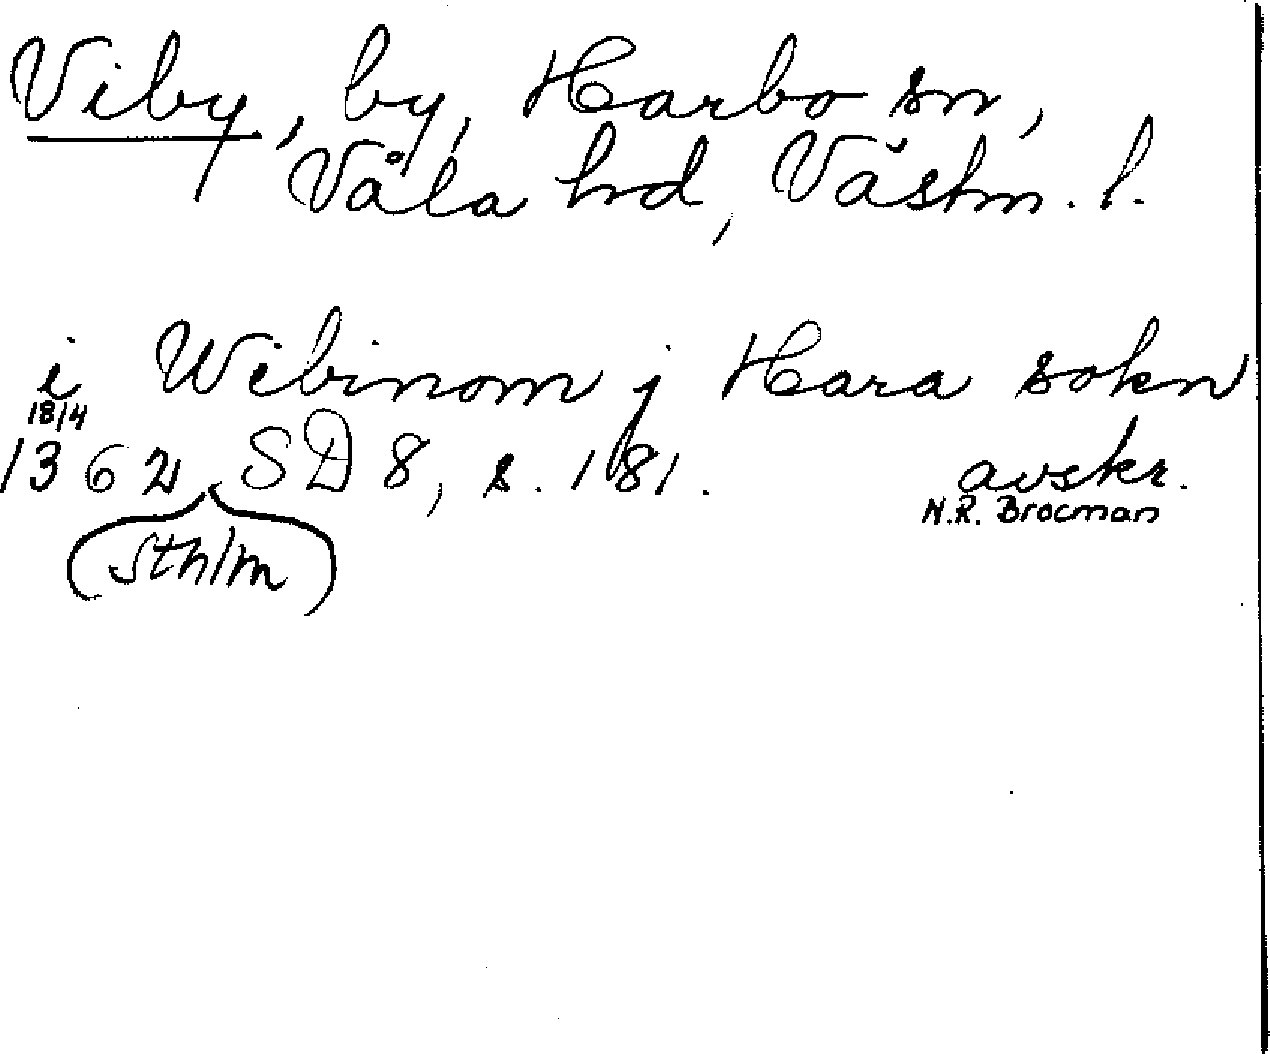 Viby, by, Harbo sn,
Våla hd, Västm. l.
i Wibinom j Hara sokn
18/4
1362 SD 8, s. 181. avskr.
N.R. Brocman
(Sthlm)